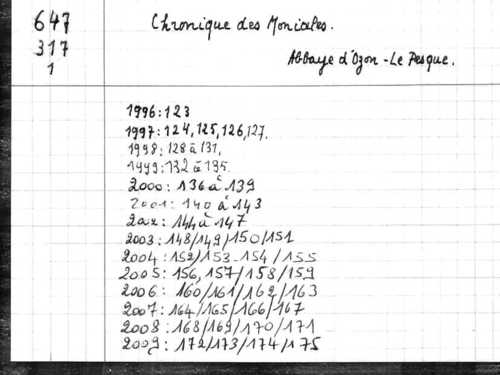 647
317
1
Chronique des Moniales.
Abbaye d'Ozon - Le Pesque.
1996: 123
1997: 124, 125, 126, 127.
1998: 128 à 131.
1999: 132 à 135.
2000: 136 à 139
2001: 140 à 143
2002: 144 à 147
2003: 148/149/150/151
2004: 152/153-154/155
2005: 156, 157/158/159
2006: 160/161/162/163
2007: 164/165/166/167
2008: 168/169/170/171
2009: 172/173/174/175